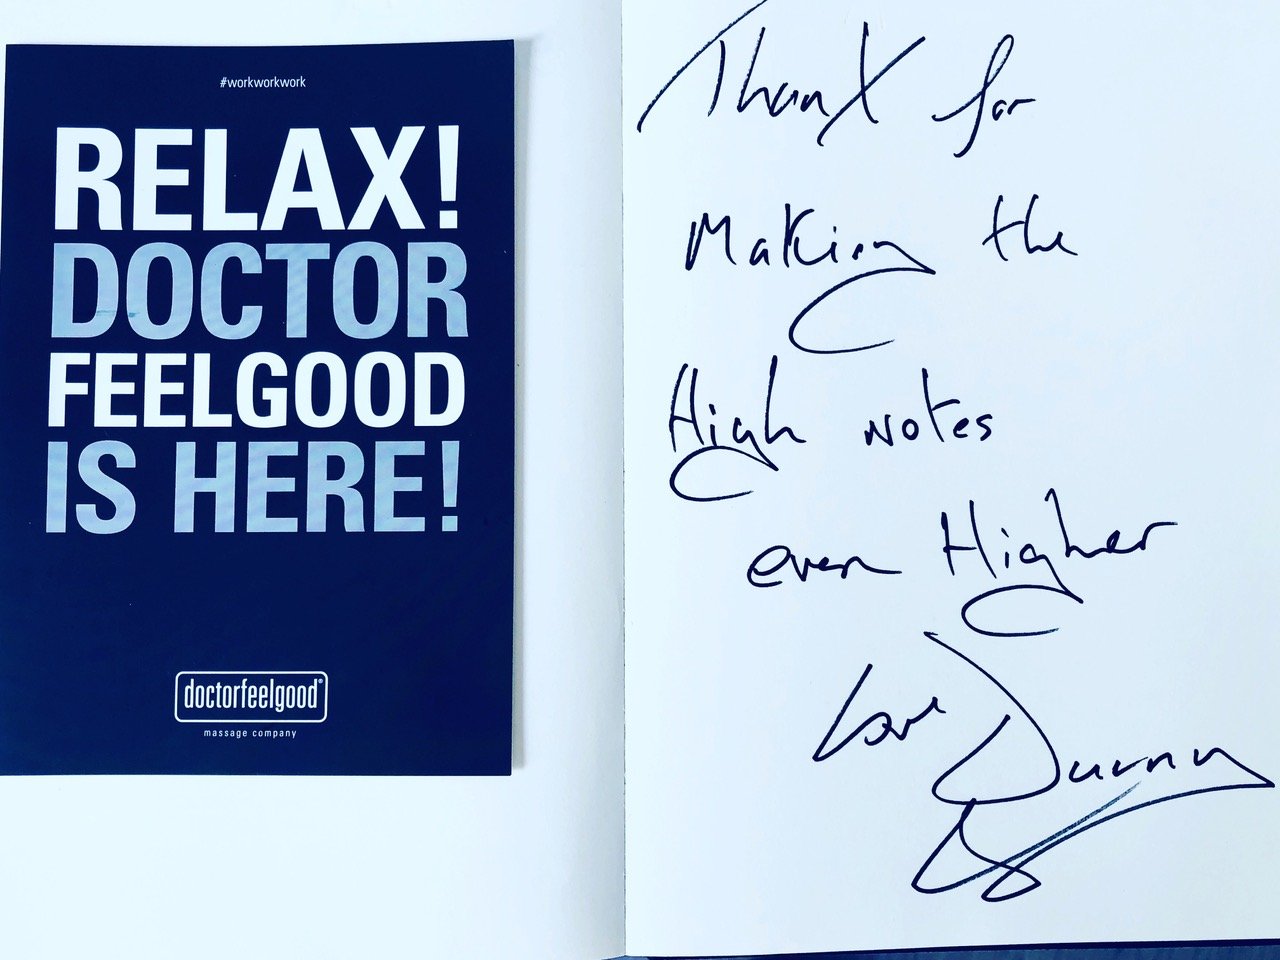 #workworkwork
RELAX!
DOCTOR
FEELGOOD
IS HERE!
doctorfeelgood®
massage company
ThanX for
Making the
High notes
even Higher
Love